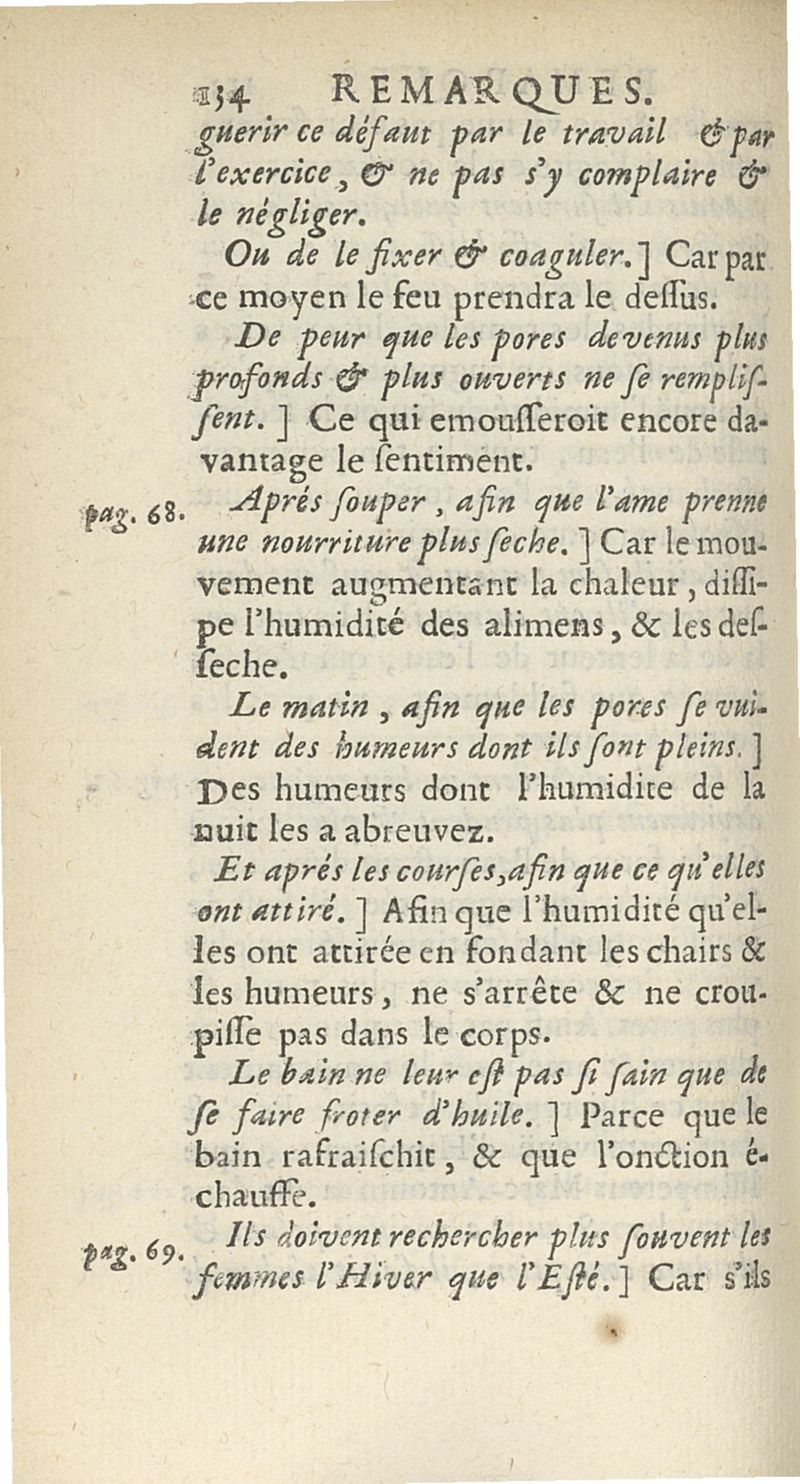 134 REMARQUES.
guerir ce défaut par le travail & par
l'exercice, & ne pas s'y complaire &
le négliger.
Ou de le fixer & coaguler.] Car par
ce moyen le feu prendra le deſſus.
De peur que les pores devenus plus
profonds & plus ouverts ne ſe rempliſ-
ſent. ] Ce qui emouſſeroit encore da-
vantage le ſentiment.
pag. 68. Aprés ſouper, afin que l'ame prenne
une nourriture plus ſeche. ] Car le mou-
vement augmentant la chaleur, diſſi-
pe l'humidité des alimens, & les deſ-
ſeche.
Le matin, afin que les pores ſe vui-
dent des humeurs dont ils ſont pleins. ]
Des humeurs dont l'humidite de la
nuit les a abreuvez.
Et aprés les courſes, afin que ce qu'elles
ont attiré. ] Afin que l'humidité qu'el-
les ont attirée en fondant les chairs &
les humeurs, ne s'arrête & ne crou-
piſſe pas dans le corps.
Le bain ne leur eſt pas ſi ſain que de
ſe faire froter d'huile. ] Parce que le
bain rafraiſchit, & que l'onction é-
chauffe.
pag. 69. Ils doivent rechercher plus ſouvent les
femmes l'Hiver que l'Eſté. ] Car s'ils